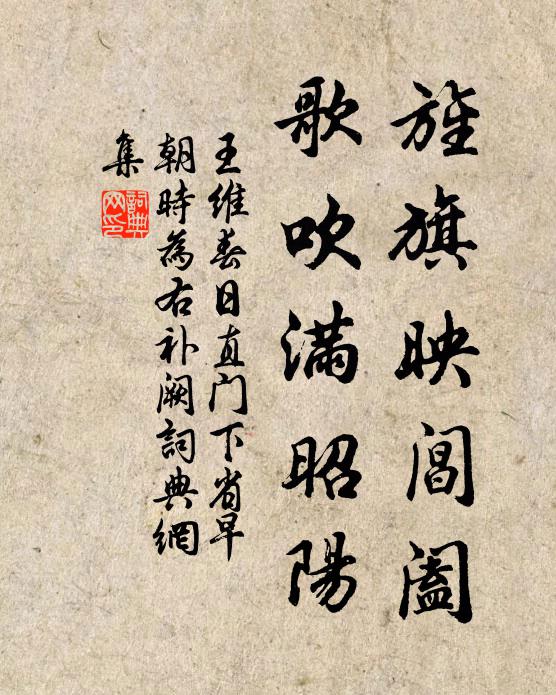 旌旗映閶阖
歌吹滿昭陽
王维春日直门下省早
朝時為右补阙詞典網
集
詞典网印